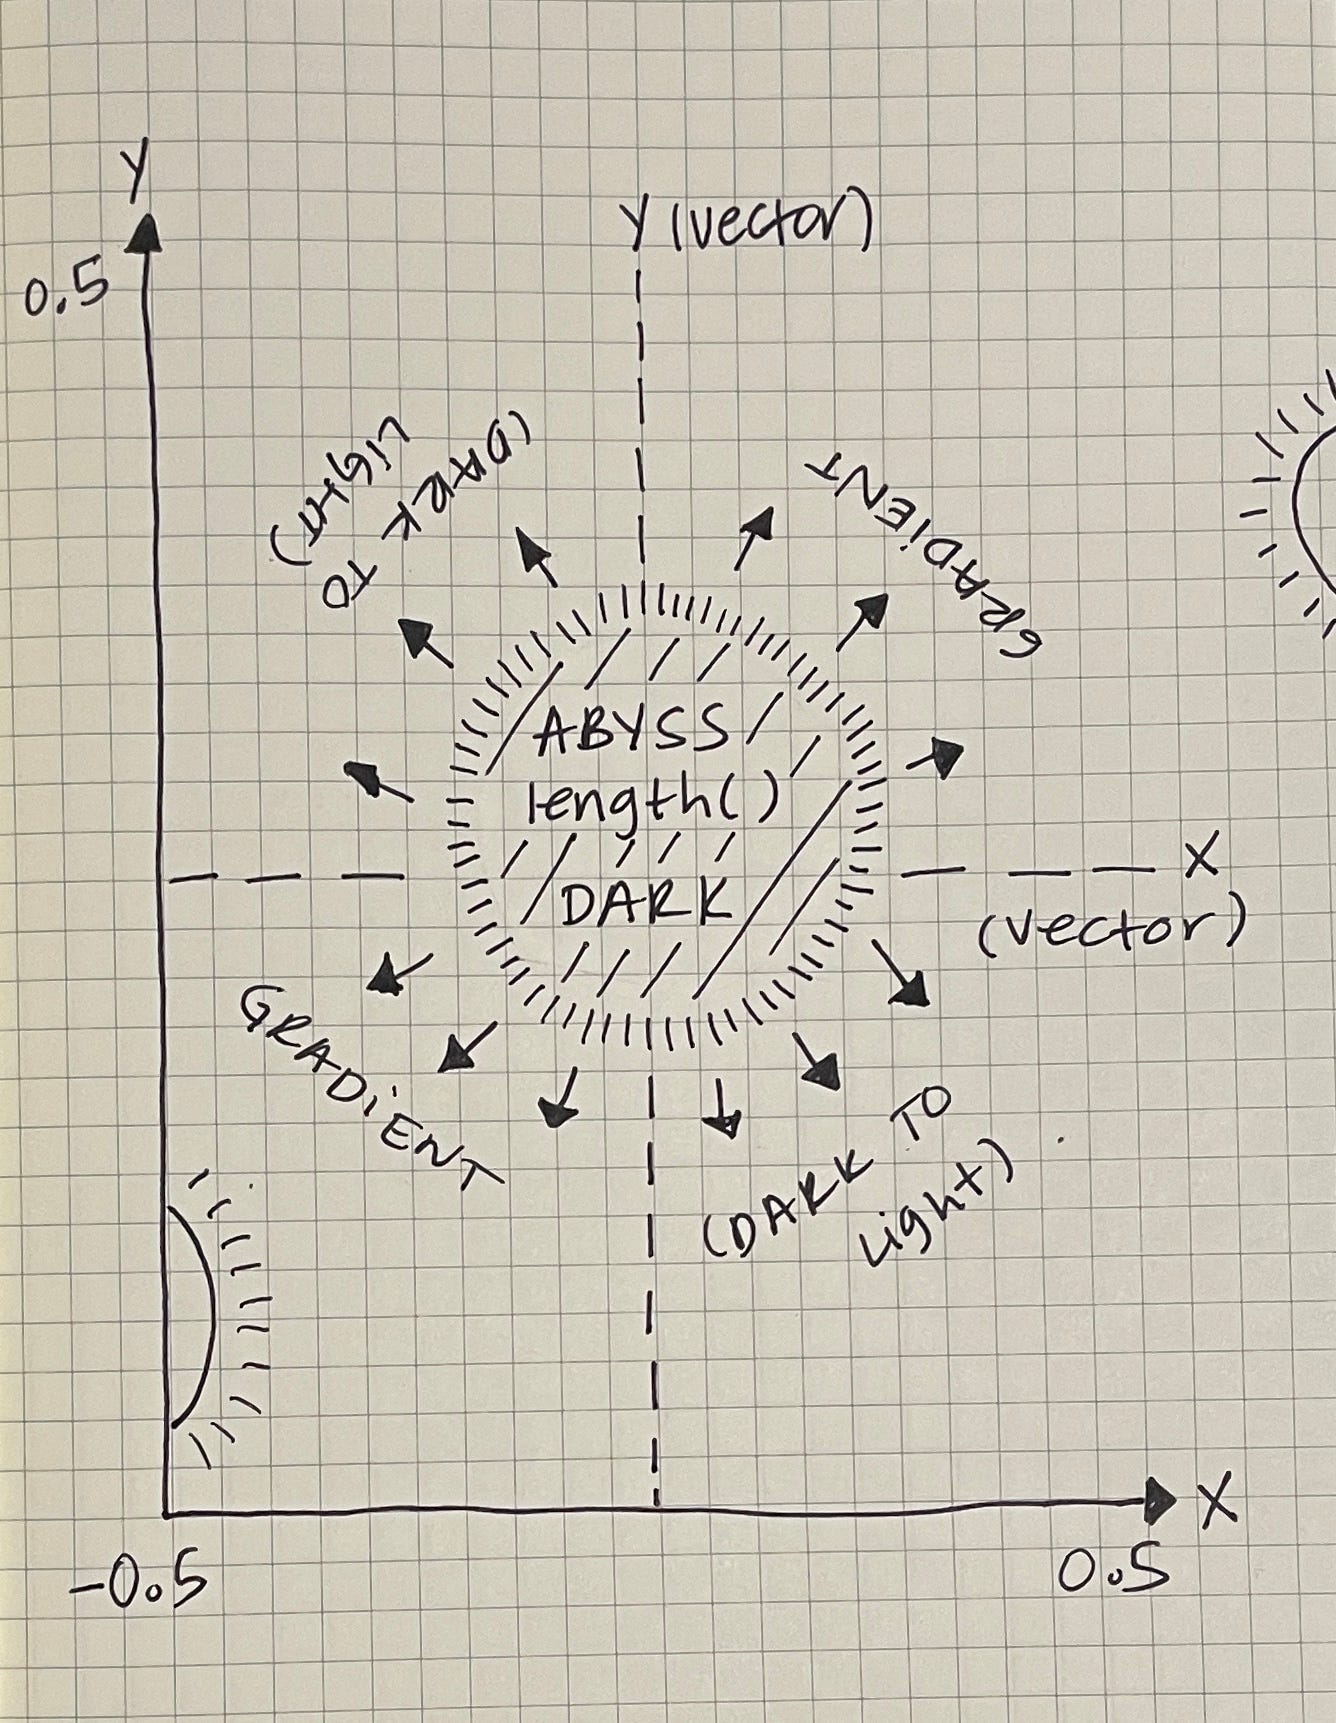 Y
Y (vector)
0.5
(DARK TO
LiGHT)
GRADiENT
ABYSS
length()
DARK
X
(vector)
GRADiENT
(DARK TO
Light)
X
-0.5
0.5